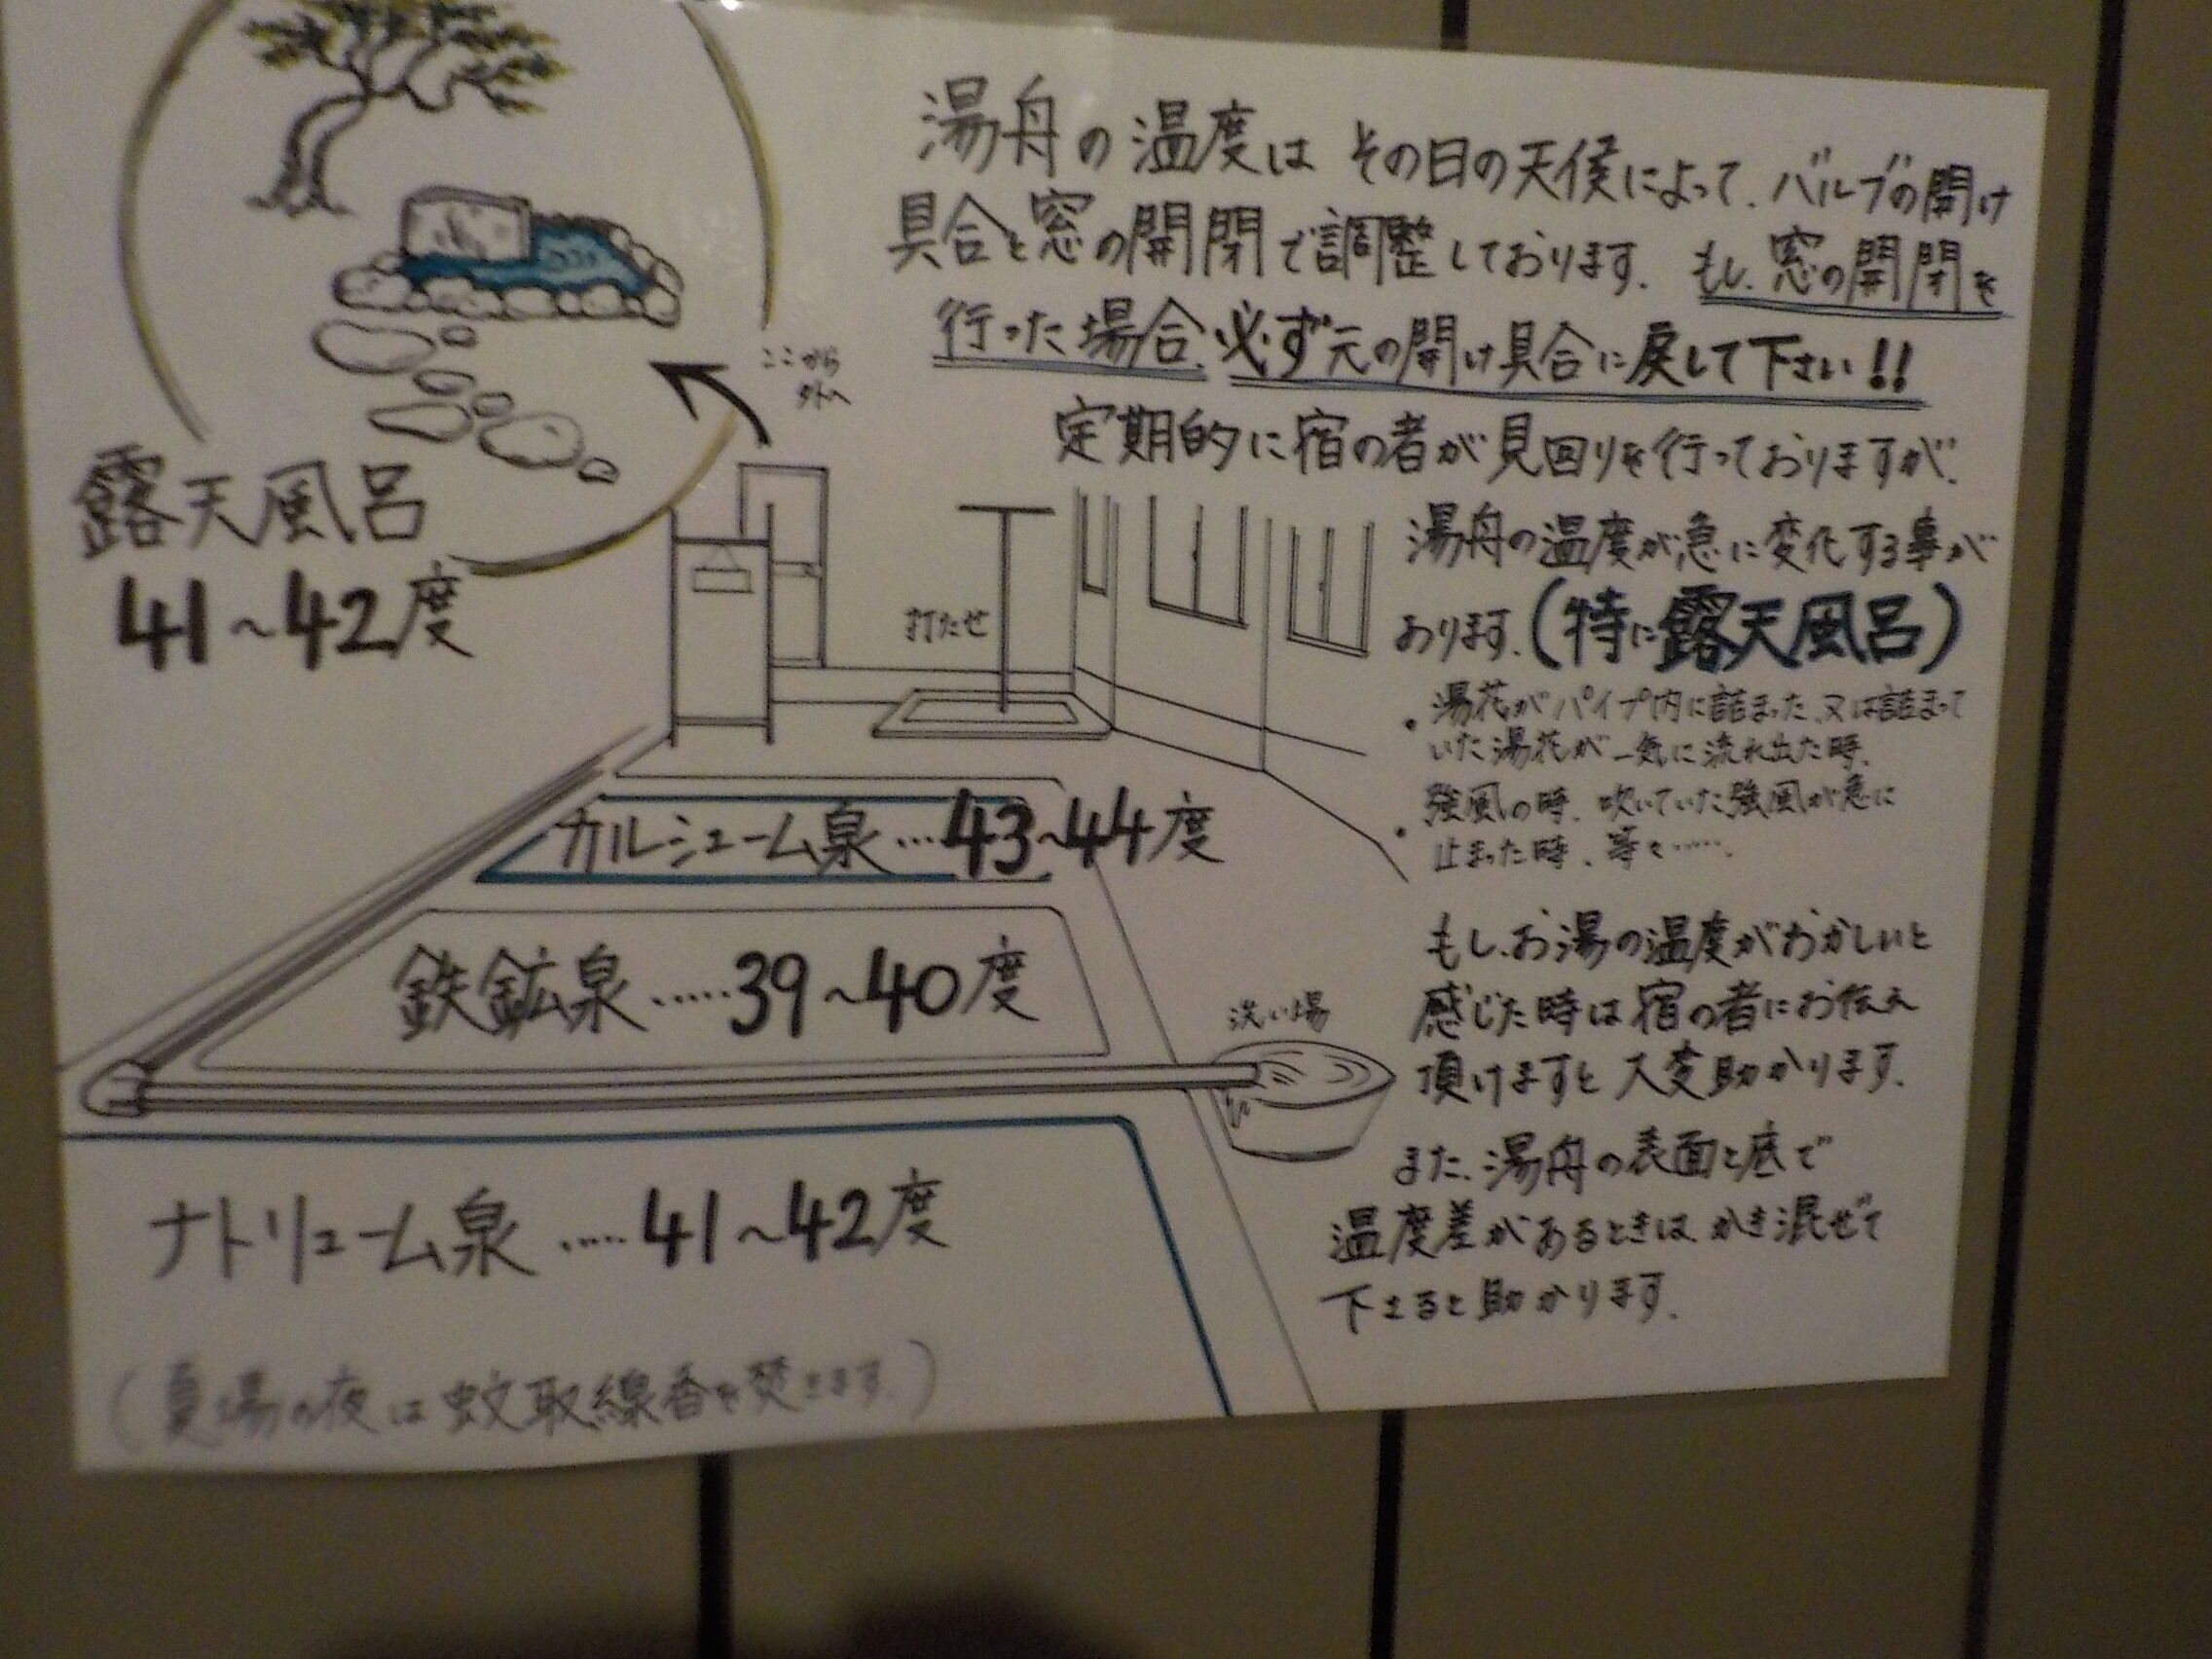 湯舟の温度は その日の天候によって、バルブの開け
具合と窓の開閉で調整しております。もし、窓の開閉を
行った場合、必ず元の開け具合に戻して下さい!!
定期的に宿の者が見回りを行っておりますが、
湯舟の温度が急に変化する事が
あります。(特に露天風呂)
・湯花がパイプ内に詰まった、又は詰まって
いた湯花が一気に流れ出た時、
・強風の時、吹いていた強風が急に
止まった時、等々……。
もし、お湯の温度がおかしいと
感じた時は宿の者にお伝え
頂けますと大変助かります。
また、湯舟の表面と底で
温度差があるときは、かき混ぜて
下さると助かります。
ここから
外へ
露天風呂
41~42度
打たせ
カルシューム泉…43~44度
鉄鉱泉……39~40度
洗い場
ナトリューム泉……41~42度
(夏場の夜は蚊取線香を焚きます。)